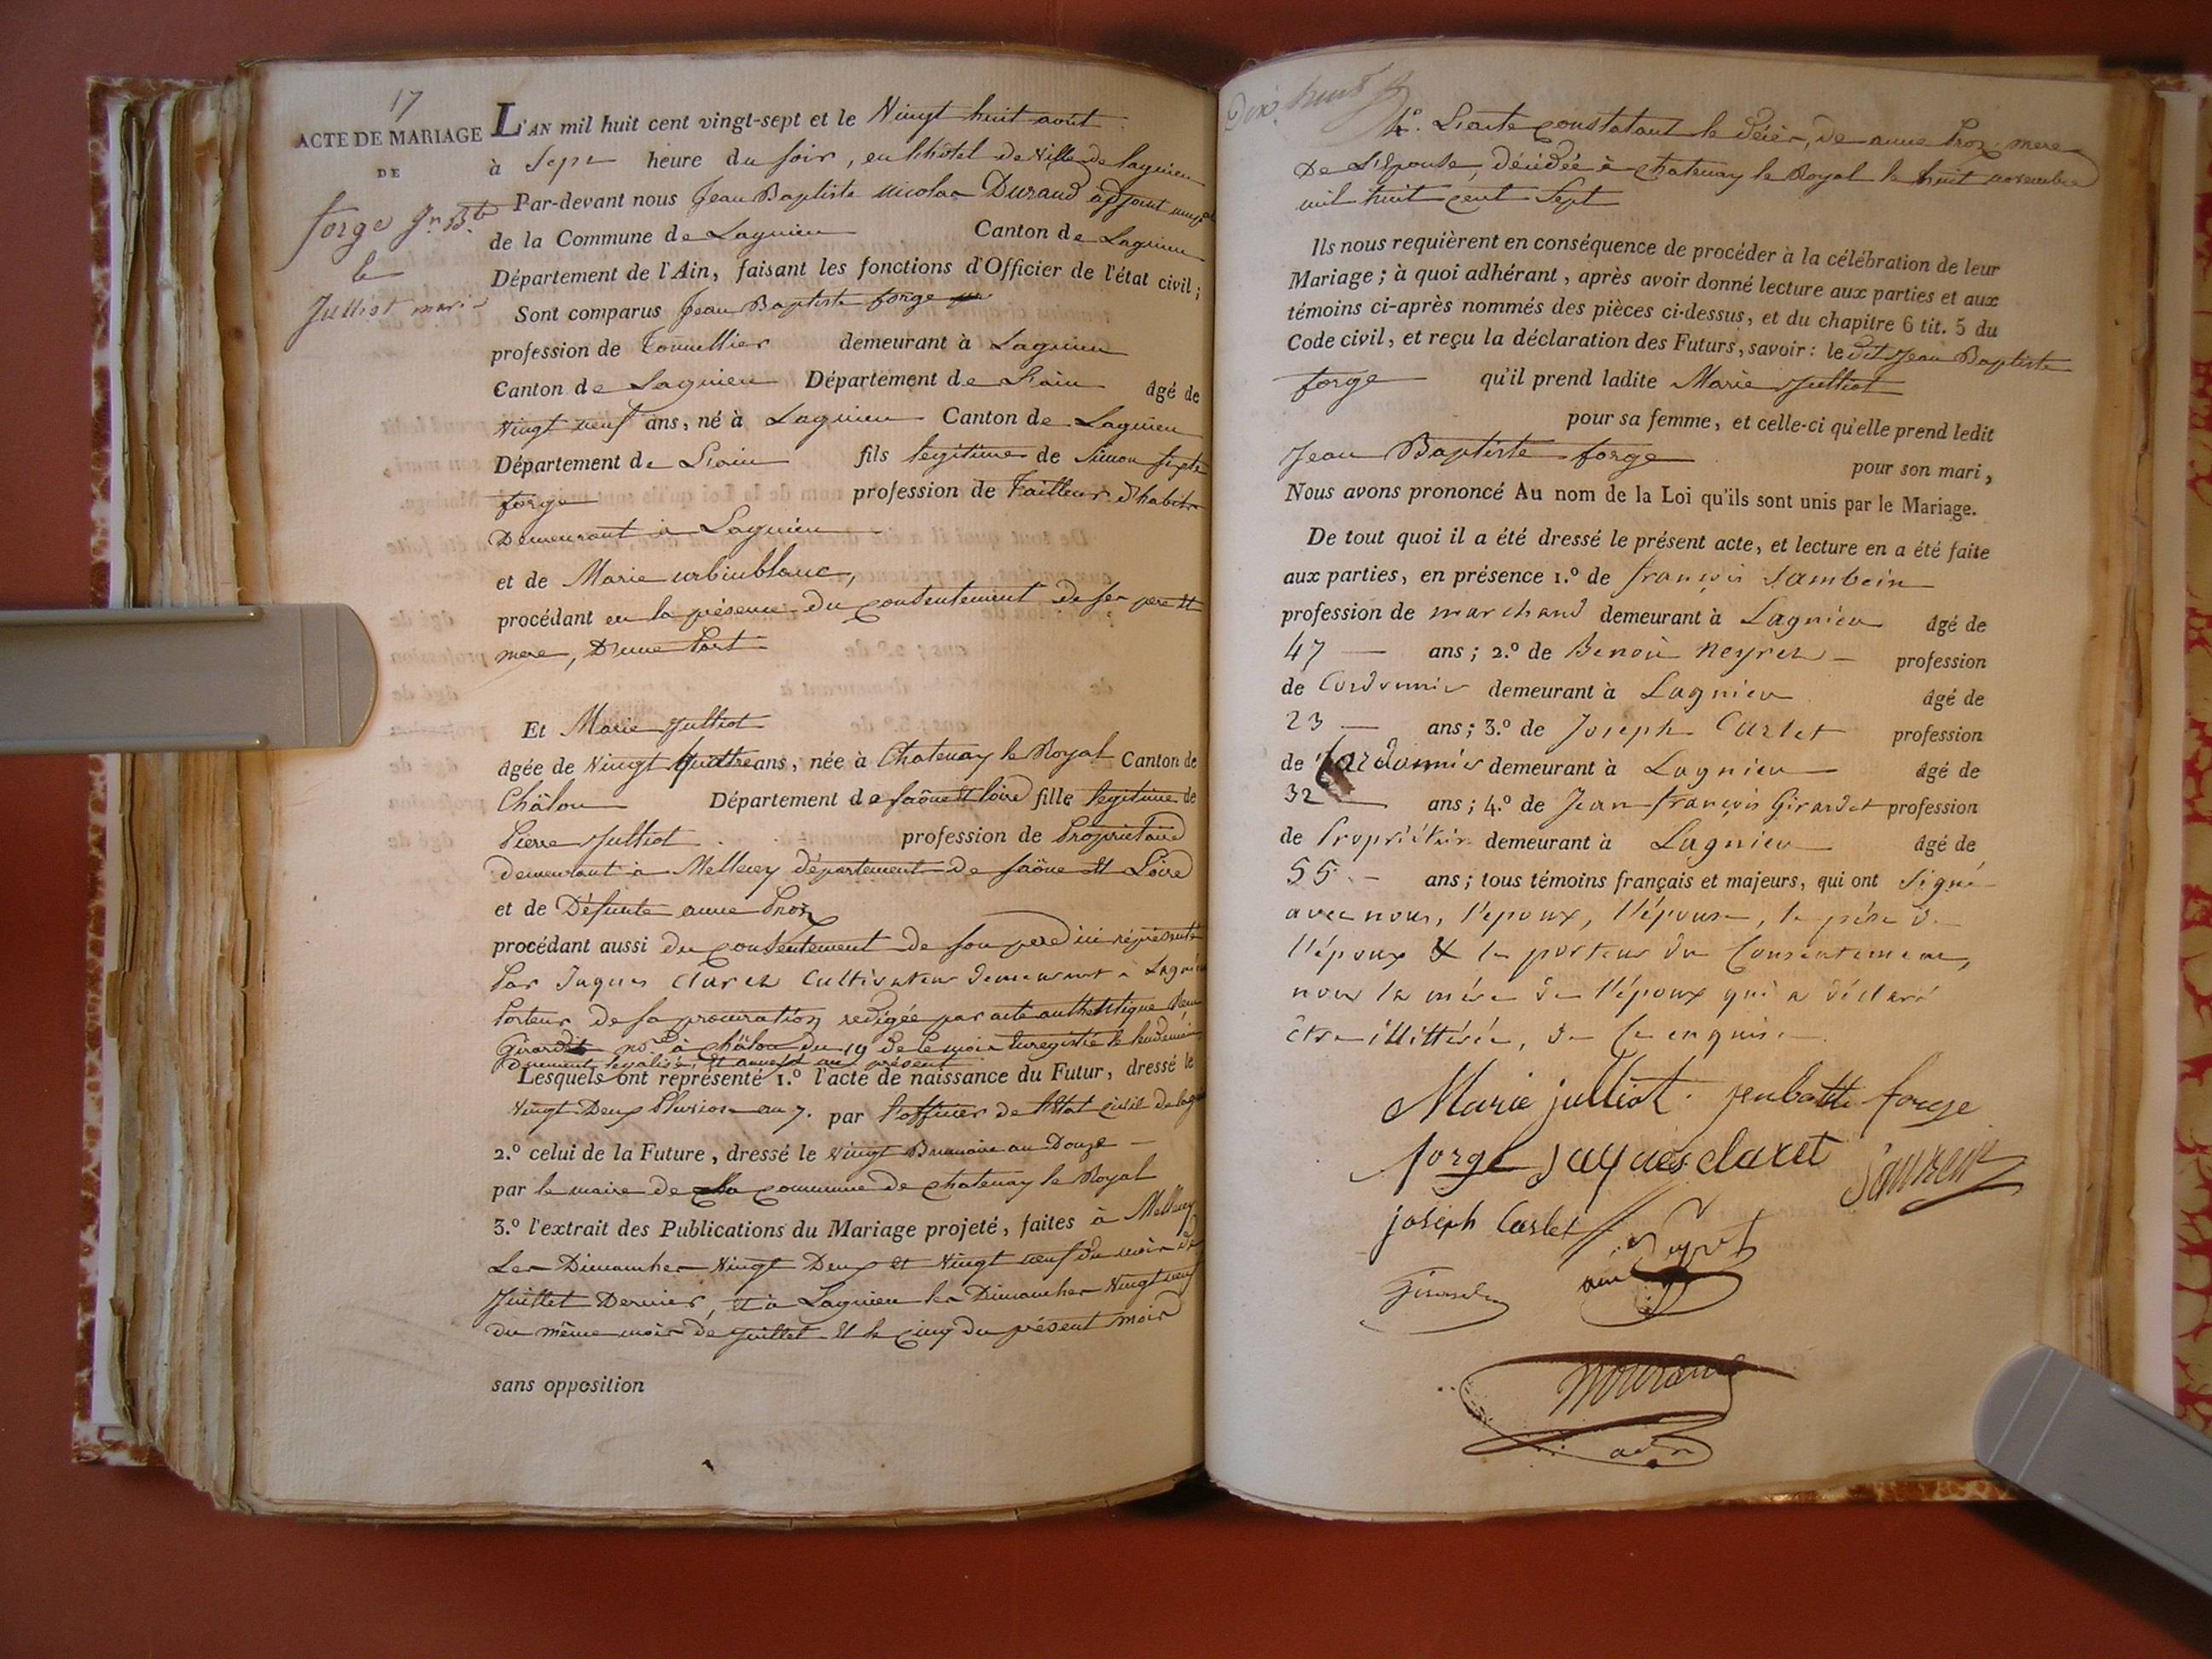 17
ACTE DE MARIAGE
DE
forge Jn. Bte
&
Julliot marie
L'AN mil huit cent vingt-sept et le Vingt huit août
à Sept heure du soir, en l'hôtel de Ville de lagnieu
Par-devant nous Jean Baptiste nicolas Durand adjoint
de la Commune de Lagnieu Canton de Lagnieu
Département de l'Ain, faisant les fonctions d'Officier de l'état civil;
Sont comparus Jean Baptiste forge
profession de Tonnellier demeurant à Lagnieu
Canton de Lagnieu Département de L'ain âgé de
Vingt neuf ans, né à Lagnieu Canton de Lagnieu
Département de L'ain fils legitime de Simon
forge profession de Tailleur d'habits
Demeurant à Lagnieu
et de Marie urbinblanc,
procédant en la présence du consentement de ses pere et
mere, D'une Part
Et Marie Julliot
âgée de Vingt quatre ans, née à Chatenay le Royal Canton de
Châlon Département de Saône et loire fille legitime de
Pierre Julliot profession de Proprietaire
demeurant à Mellecey département de Saône et Loire
et de Défunte anne Proz
procédant aussi du consentement de son pere ici représenté
Par Jaques Claret Cultivateur demeurant à Lagnieu
Porteur de sa procuration redigée par acte authentique
Girardet nre. à Châlon du 19 de ce mois Enregistré le lendemain
Duement legalisé, et annexé au présent
Lesquels ont représenté 1.º l'acte de naissance du Futur, dressé le
Vingt Deux Pluviose an 7. par l'officier de l'Etat civil de
2.º celui de la Future, dressé le Vingt Brumaire an Douze
par le maire de la commune de chatenay le Royal
3.º l'extrait des Publications du Mariage projeté, faites à Mellecey
Les Dimanches Vingt Deux et Vingt neuf du mois de
Juillet Dernier, et à Lagnieu les Dimanches Vingt neuf
du même mois de Juillet et le cinq du présent mois
sans opposition
Dix huit
4º. L'acte constatant le décès, de anne Proz mere
De L'Epouse, décédée à chatenay le Royal le huit novembre
mil huit cent Sept
Ils nous requièrent en conséquence de procéder à la célébration de leur
Mariage; à quoi adhérant, après avoir donné lecture aux parties et aux
témoins ci-après nommés des pièces ci-dessus, et du chapitre 6 tit. 5 du
Code civil, et reçu la déclaration des Futurs, savoir: le dit Jean Baptiste
forge qu'il prend ladite Marie Julliot
pour sa femme, et celle-ci qu'elle prend ledit
Jean Baptiste forge pour son mari,
Nous avons prononcé Au nom de la Loi qu'ils sont unis par le Mariage.
De tout quoi il a été dressé le présent acte, et lecture en a été faite
aux parties, en présence 1.º de françois Sambein
profession de marchand demeurant à Lagnieu âgé de
47 ans; 2.º de Benoit Neyret profession
de Cordonnier demeurant à Lagnieu âgé de
23 ans; 3.º de Joseph Carlet profession
de Cordonnier demeurant à Lagnieu âgé de
32 ans; 4.º de Jean françois Girardet profession
de Propriétaire demeurant à Lagnieu âgé de
55 ans; tous témoins français et majeurs, qui ont Signé
avec nous, l'epoux, l'épouse, le père de
l'époux & le porteur du Consentement,
non la mère de l'époux qui a déclaré
être illittérée, de ce enquise
Marie julliot. jenbatte forge
forge jaques claret
joseph Carlet
Neyret
Girardet
NDurand
adjt